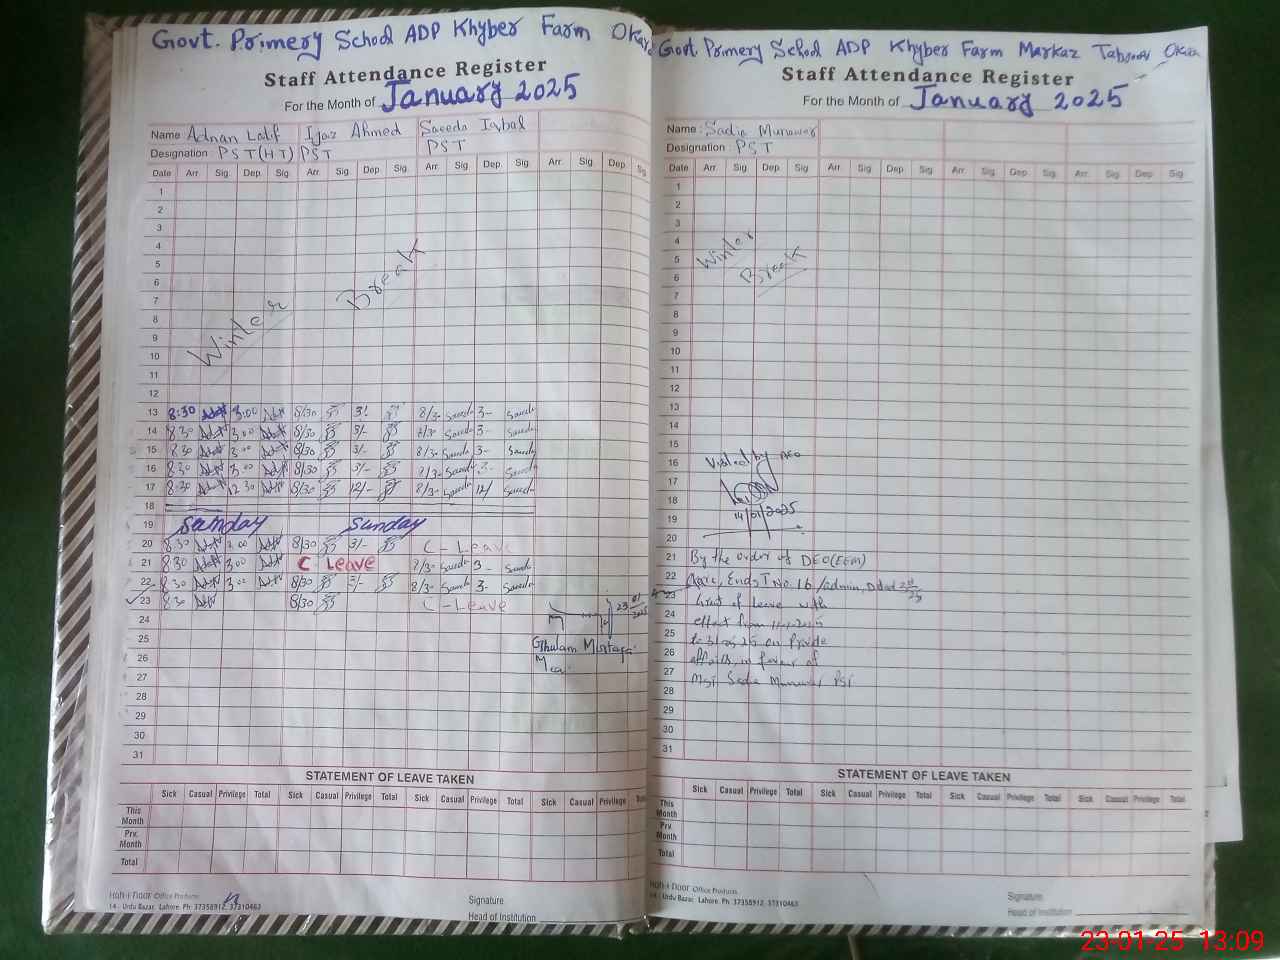 Govt. Primery School ADP Khyber Farm Okara
Staff Attendance Register
For the Month of January 2025
Name Adnan Latif Ijaz Ahmed Saeeda Iqbal
Designation PST(HT) PST PST
Date Arr. Sig. Dep. Sig. Arr. Sig. Dep. Sig. Arr. Sig. Dep. Sig. Arr. Sig. Dep. Sig.
1
2
3
4
5
6
7
8
9
10
11
12
Winter Break
13 8:30 3:00 8/30 3/- 8/3- Saeeda 3- Saeeda
14 8:30 3:00 8/30 3/- 8/30 Saeeda 3- Saeeda
15 8:30 3:00 8/30 3/- 8/3- Saeeda 3- Saeeda
16 8:30 3:00 8/30 3/- 8/3- Saeeda 3- Saeeda
17 8:30 12:30 8/30 12/- 8/3- Saeeda 12/ Saeeda
18
19 Sunday Sunday
20 8:30 3:00 8/30 3/- C-Leave
21 8:30 3:00 C Leave 8/3- Saeeda 3- Saeeda
22 8:30 3:00 8/30 3/- 8/3- Saeeda 3- Saeeda
23 8:30 8/30 C-Leave
23/01/2025
24
25 Ghulam Murtaza
26 Mea
27
28
29
30
31
STATEMENT OF LEAVE TAKEN
Sick Casual Privilege Total Sick Casual Privilege Total Sick Casual Privilege Total Sick Casual Privilege Total
This Month
Prv. Month
Total
Office Products
14 - Urdu Bazar, Lahore. Ph: 37358912, 37310463
Signature
Head of Institution
Govt. Primery School ADP Khyber Farm Markaz Okara
Staff Attendance Register
For the Month of January 2025
Name: Sadia Munawar
Designation: PST
Date Arr. Sig. Dep. Sig. Arr. Sig. Dep. Sig. Arr. Sig. Dep. Sig. Arr. Sig. Dep. Sig.
1
2
3
4
5
6
7
Winter Break
8
9
10
11
12
13
14
15
16 Visited by AEO
17
18
19 14/01/2025
20
21 By the order of DEO(EEM)
22 No. 16/admin, Dated
23 Grant of leave with
24 effect from
25 on Private
26 affairs in favour of
27 Mst. Sadia Munawar PST
28
29
30
31
STATEMENT OF LEAVE TAKEN
Sick Casual Privilege Total Sick Casual Privilege Total Sick Casual Privilege Total Sick Casual Privilege Total
This Month
Prv. Month
Total
Office Products
14 - Urdu Bazar, Lahore. Ph: 37358912, 37310463
Signature
Head of Institution
23-01-25 13:09